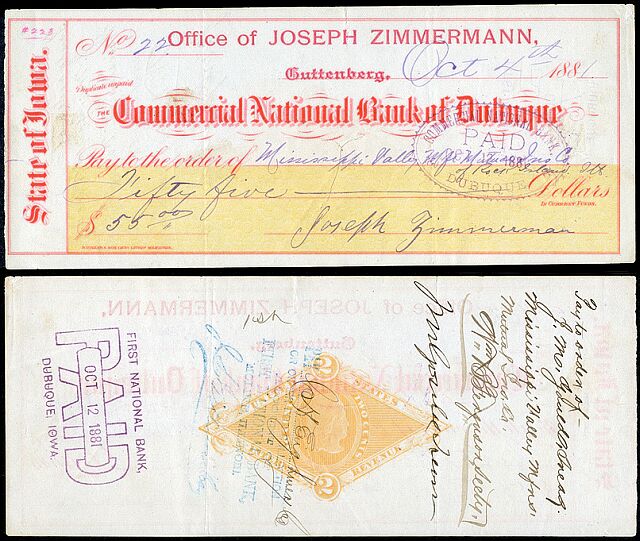 #223
State of Iowa.
No. 22
Office of JOSEPH ZIMMERMANN,
Guttenberg, Oct 4th 1881.
Duplicate unpaid
THE Commercial National Bank of Dubuque
Pay to the order of Mississippi Valley Mfrs Mutual Ins Co.
of Rock Island, Ills.
Fifty five Dollars
In Current Funds.
$ 55.00 Joseph Zimmerman
COMMERCIAL NATIONAL BANK
PAID
DUBUQUE
FIRST NATIONAL BANK,
PAID
OCT 12 1881
DUBUQUE, IOWA.
UNITED STATES
TWO CENTS
INTERNAL REVENUE
2
2
Pay to order of
J. M. Gould Treas.
Mississippi Valley Mfrs.
Mutual
Secty.
J M Gould Treas